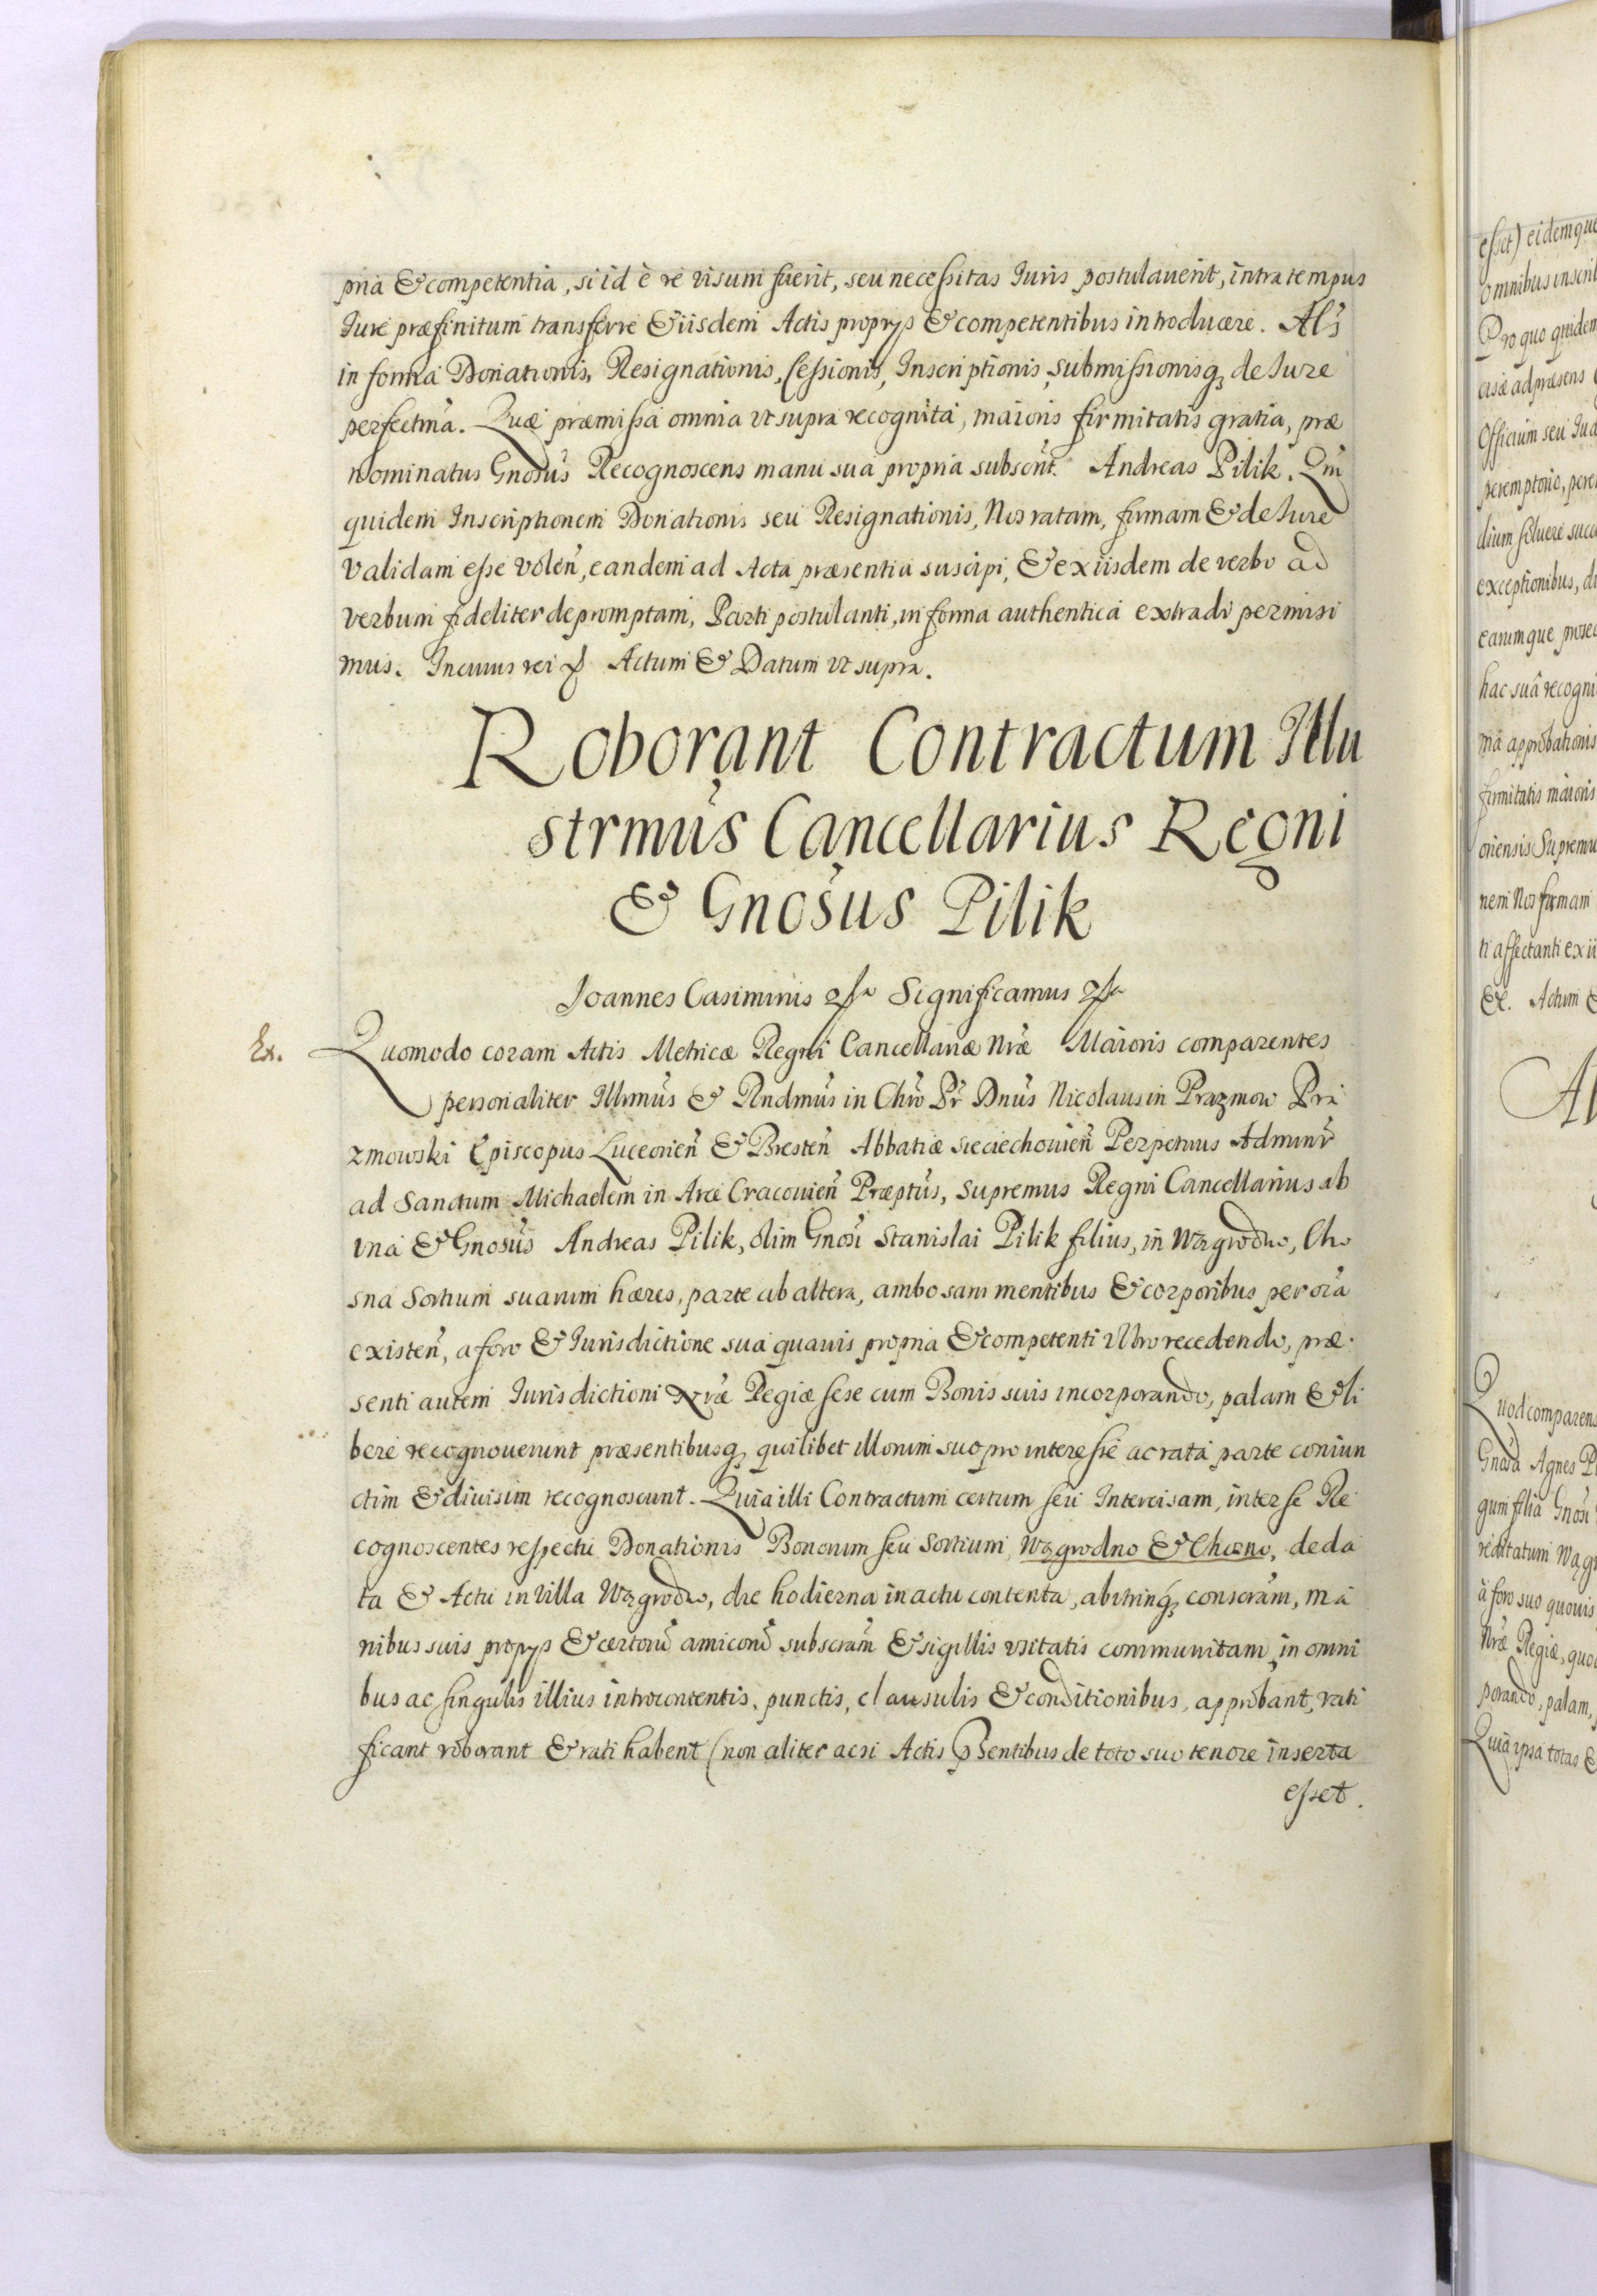 pria & competentia, si id è re visum fuerit, seu necessitas Juris postulauerit, intra tempus
Jure præfinitum transferre & iisdem Actis proprys & competentibus introducere. Als̃
in forma Donationis, Resignationis, Cessionis, Inscriptionis, submissionisq, de Jure
perfectma. Quæ præmissa omnia vt supra recognita, maioris firmitatis gratia, præ
nominatus Gnosus Recognoscens manu sua propria subscrit. Andreas Pilik. Qm
quidem Inscriptionem Donationis seu Resignationis, Nos ratam, firmam & de Jure
validam esse volen, eandem ad Acta præsentia suscipi, & ex iisdem de verbo ad
verbum fideliter depromptam, Parti postulanti, in forma authentica extradi permisi
mus. In cuius rei Actum & Datum vt supra.
Roborant Contractum Illu
strmus Cancellarius Regni
& Gnosus Pilik
Joannes Casimirus Significamus
Ex. Quomodo coram Actis Metricæ Regni Cancellariæ Nræ Maioris comparentes
personaliter Illrmus & Rndmus in Chro Pr Dnus Nicolaus in Prazmow Pra
zmowski Episcopus Luceorien & Bresten Abbatiæ sieciechouien Perpetuus Adminr
ad Sanctum Michaelem in Arce Cracouien Præptus, supremus Regni Cancellarius ab
vna & Gnosus Andreas Pilik, olim Gnosi Stanislai Pilik filius, in Wzgrodno, Cho
sna Sortium suarum hæres, parte ab altera, ambo sani mentibus & corporibus per oia
existen, a foro & Jurisdictione sua quauis propria & competenti vltro recedendo, præ
senti autem Jurisdictioni Nræ Regiæ sese cum Bonis suis incorporando, palam & li
bere recognouerunt præsentibusq, quilibet illorum suo pro interesse ac rata parte coniun
ctim & diuisim recognoscunt. Quia illi Contractum certum seu Intercisam, inter se Re
cognoscentes respectu Donationis Bonorum seu Sortium, Wzgrodno & Chosno, de da
ta & Actu in Villa Wzgrodno, die hodierna in actu contenta, ab vtrinq, conscram, ma
nibus suis proprys & certoru amicoru subscram & sigillis vsitatis communitam, in omni
bus ac singulis illius introcontentis, punctis, clausulis & conditionibus, approbant, rati
ficant roborant & rati habent (non aliter acsi Actis Psentibus de toto suo tenore inserta
esset.
esset) eidemque
omnibus inscri
Pro quo quidem
cisæ ad præsens
Officium seu Jud
peremptorio, pere
dium soluere succ
exceptionibus, di
earumque prosec
hac suâ recogni
ma approbationis
firmitatis maioris
oriensis Supremu
nem Nos firmam
ti affectanti ex ii
&. Actum &
Quod comparens
Gnosa Agnes P
gum filia Gnosi
reditatum Wzg
à foro suo quouis
Nræ Regiæ, quo
porando, palam,
Quia ipsa totas &